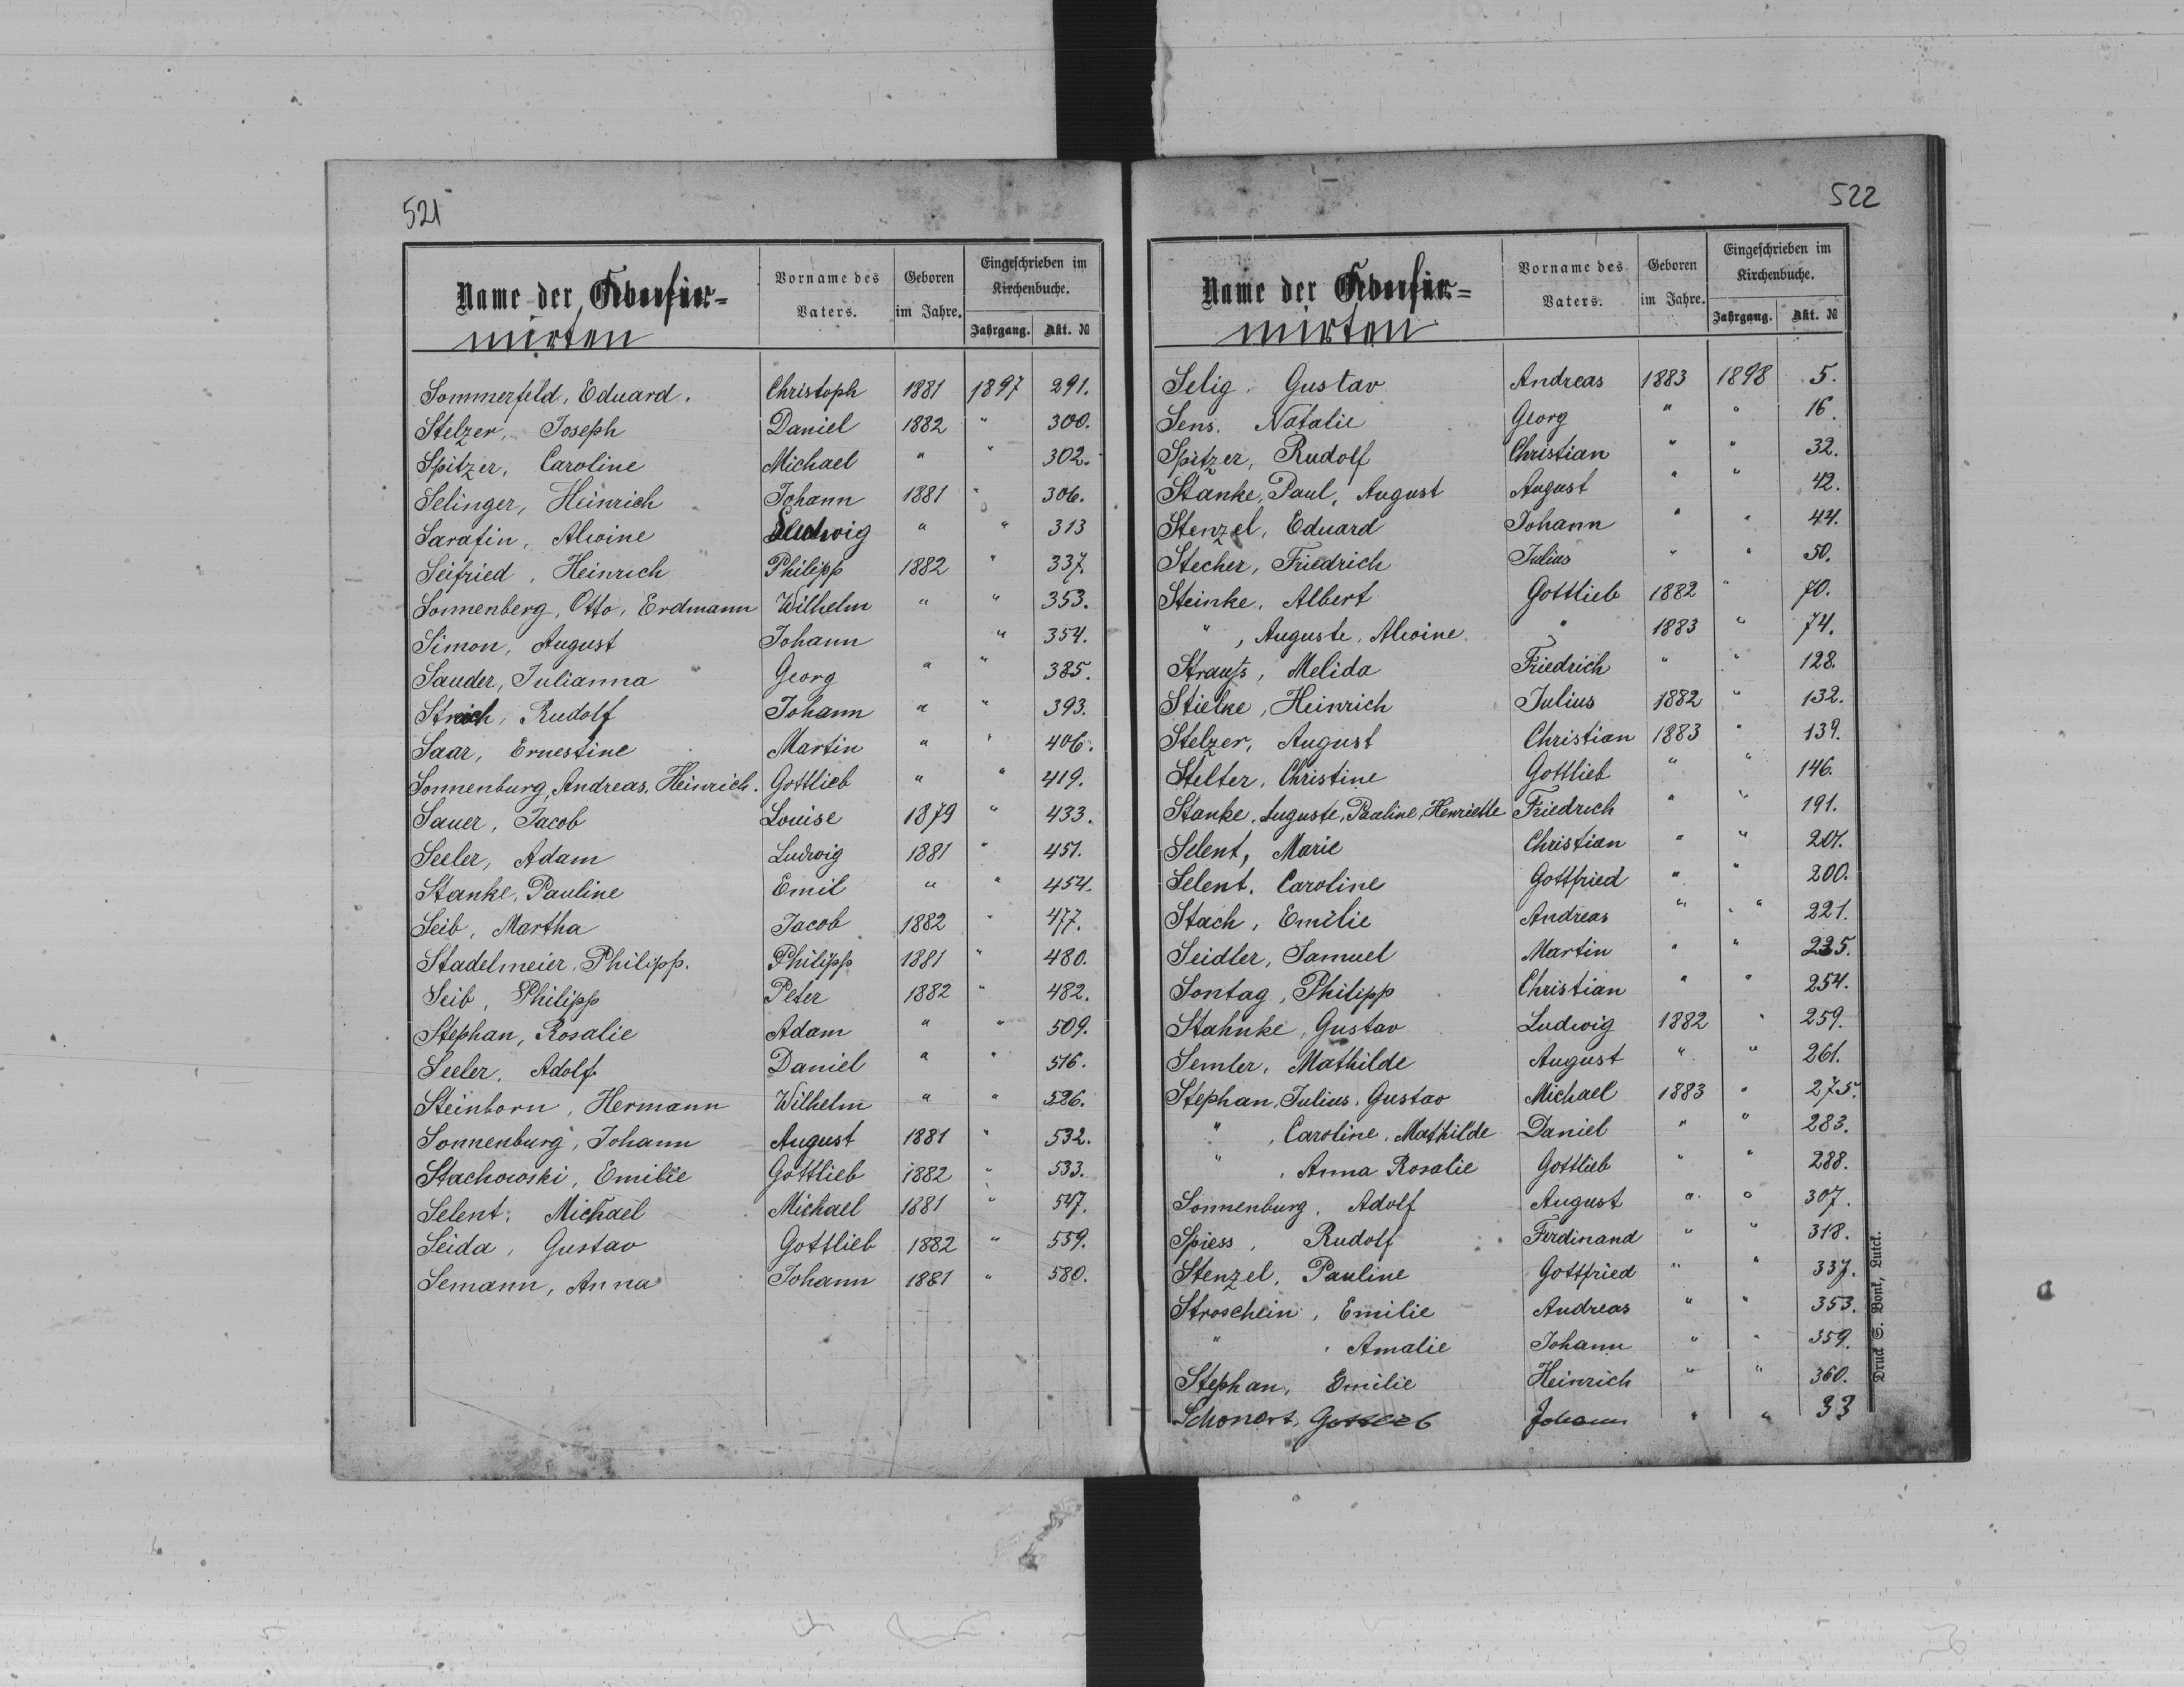 521
Name der Confir=
mirten
Vorname des Vaters.
Geboren im Jahre.
Eingeschrieben im Kirchenbuche.
Jahrgang. Akt. №
Sommerfeld, Eduard. Christoph 1881 1897 291.
Stelzer, Joseph Daniel 1882 " 300.
Spitzer, Caroline Michael " " 302.
Selinger, Heinrich Johann 1881 " 306.
Sarafin, Alwine Ludwig " " 313
Seifried, Heinrich Philipp 1882 " 337.
Sonnenberg, Otto, Erdmann Wilhelm " " 353.
Simon, August Johann " 354.
Sauder, Julianna Georg " " 385.
Strich, Rudolf Johann " " 393.
Saar, Ernestine Martin " " 406.
Sonnenburg, Andreas, Heinrich. Gottlieb " " 419.
Sauer, Jacob Louise 1879 " 433.
Seeler, Adam Ludwig 1881 " 451.
Stanke, Pauline Emil " " 454.
Seib, Martha Jacob 1882 " 477.
Stadelmeier, Philipp. Philipp 1881 " 480.
Seib, Philipp Peter 1882 " 482.
Stephan, Rosalie Adam " " 509.
Seeler, Adolf Daniel " " 516.
Steinborn, Hermann Wilhelm " " 526.
Sonnenburg, Johann August 1881 " 532.
Stachowski, Emilie Gottlieb 1882 " 533.
Selent, Michael Michael 1881 " 547.
Seida, Gustav Gottlieb 1882 " 559.
Semann, Anna Johann 1881 " 580.
522
Name der Confir=
mirten
Vorname des Vaters.
Geboren im Jahre.
Eingeschrieben im Kirchenbuche.
Jahrgang. Akt. №
Selig, Gustav Andreas 1883 1898 5.
Sens, Natalie Georg " " 16.
Spitzer, Rudolf Christian " " 32.
Stanke, Paul, August August " " 42.
Stenzel, Eduard Johann " " 44.
Stecher, Friedrich Julius " " 50.
Steinke, Albert Gottlieb 1882 " 70.
" , Auguste, Alwine " 1883 " 74.
Strauß, Melida Friedrich " " 128.
Stielke, Heinrich Julius 1882 " 132.
Stelzer, August Christian 1883 " 139.
Stelter, Christine Gottlieb " " 146.
Stanke, Auguste, Pauline, Henriette Friedrich " " 191.
Selent, Marie Christian " " 207.
Selent, Caroline Gottfried " " 200.
Stach, Emilie Andreas " " 221.
Seidler, Samuel Martin " " 225.
Sontag, Philipp Christian " " 254.
Stahnke, Gustav Ludwig 1882 " 259.
Semler, Mathilde August " " 261.
Stephan, Julius, Gustav Michael 1883 " 275.
" , Caroline, Mathilde Daniel " " 283.
" , Anna Rosalie Gottlieb " " 288.
Sonnenburg, Adolf August " " 307.
Spiess, Rudolf Ferdinand " " 318.
Stenzel, Pauline Gottfried " " 337.
Stroschein, Emilie Andreas " " 353.
" , Amalie Johann " " 359.
Stephan, Emilie Heinrich " " 360.
Schonert, Gottlieb Johann " " 33
Druck S. Bonk, Lutck.